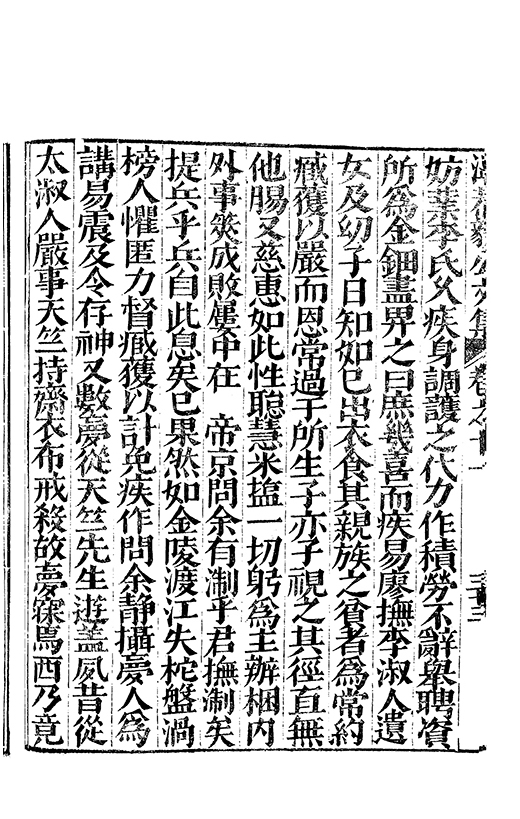 公文集 卷之十一 三十三
妨葉李氏久疾身調護之代力作積勞不辭舉聘資
所為金鈿盡畀之曰庶幾喜而疾易廖撫李淑人遺
女及幼子日知如已出衣食其親族之貧者為常約
臧獲以嚴而恩常過于所生子亦子視之其徑直無
他腸又慈惠如此性聰慧米塩一切躬為主辦梱內
外事筴成敗屢中在 帝京問余有制乎君撫制矣
提兵乎兵自此息矣已果然如金陵渡江失柁盤渦
榜人懼匿力督臧獲以計免疾作問余靜攝夢人為
講易震及令存神又數夢從天竺先生遊蓋夙昔從
太淑人嚴事天竺持齋衣布戒殺故夢寐焉西乃竟